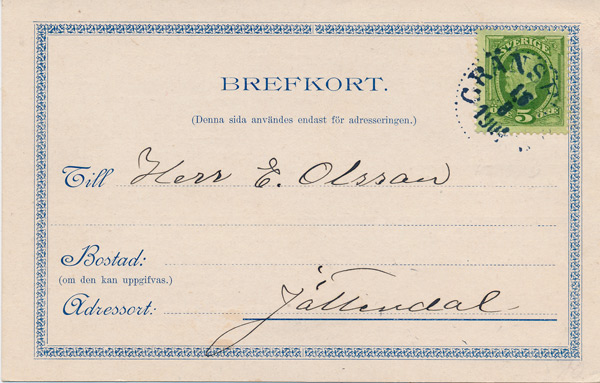 BREFKORT.
SVERIGE
GRÄNSF
5 ÖRE
(Denna sida användes endast för adresseringen.)
Till Herr E. Olsson
Bostad:
(om den kan uppgifvas.)
Adressort: Jättendal